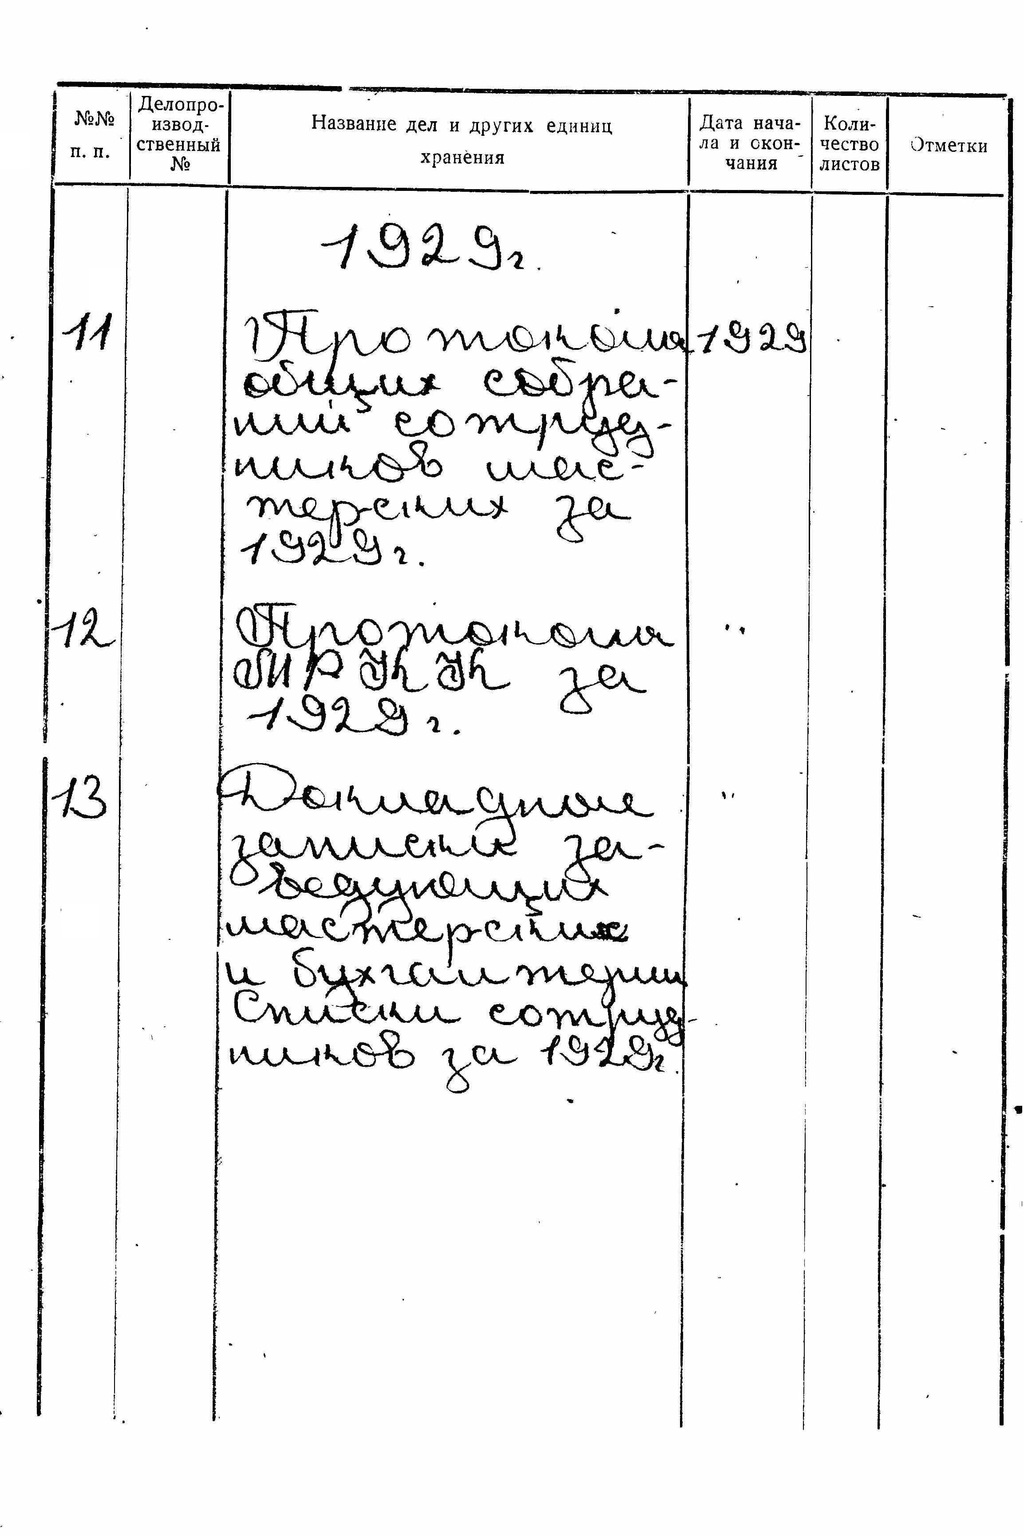 №№ п. п.
Делопро-
извод-
ственный
№
Название дел и других единиц
хранения
Дата нача-
ла и окон-
чания
Коли-
чество
листов
Отметки
1929г.
11 Протоколы 1929
общих собра-
ний сотруд-
ников мас-
терских за
1929г.
12 Протоколы "
за
1929г.
13 Докладные "
записки за-
ведующих
мастерских
и бухгалтерии
Списки сотруд-
ников за 1929г.